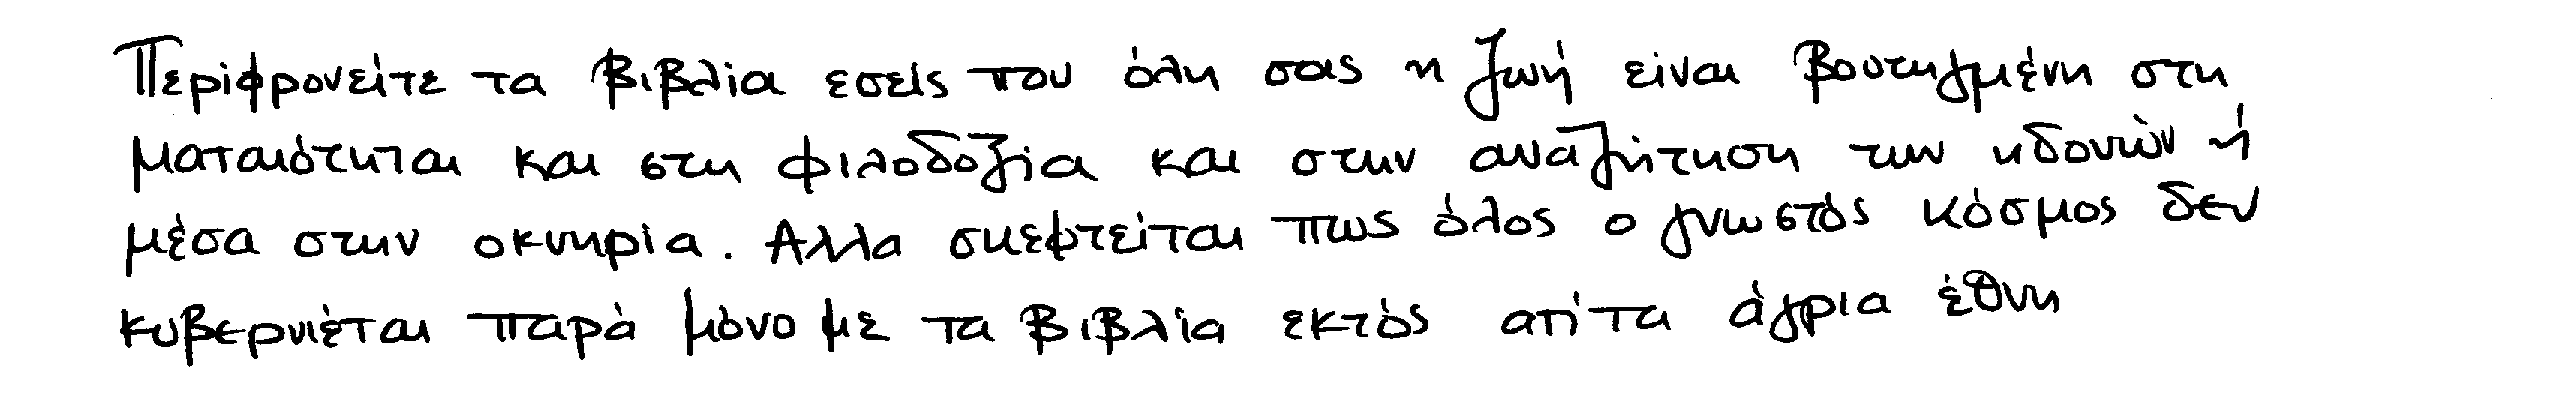 Περιφρονείτε τα βιβλία εσείς που όλη σας η ζωή είναι βουτηγμένη στη
ματαιότηται και στη φιλοδοξία και στην αναζήτηση των ηδονών ή
μέσα στην οκνηρία. Αλλα σκεφτείται πως όλος ο γνωστός κόσμος δεν
κυβερνιέται παρά μόνο με τα βιβλία εκτός απ' τα άγρια έθνη